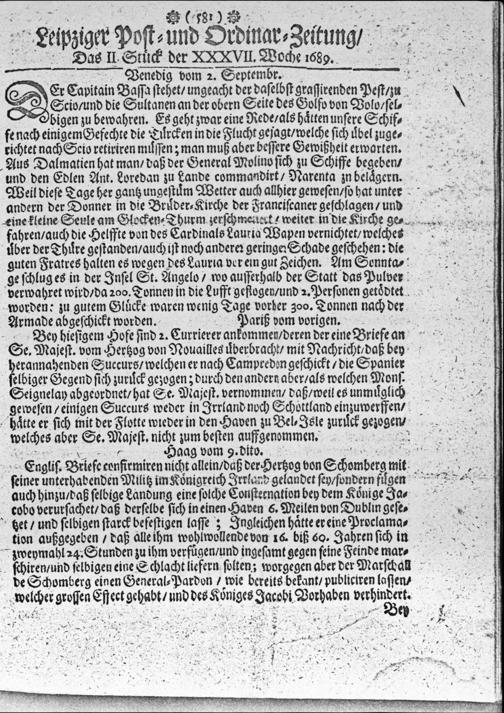 ( 581 )
Leipziger Post- und Ordinar-Zeitung/
Das II. Stück der XXXVII. Woche 1689.
Venedig vom 2. Septembr.
DEr Capitain Bassa stehet/ ungeacht der daselbst grassirenden Pest/zu
Scio/und die Sultanen an der obern Seite des Golfo von Volo/sel-
bigen zu bewahren. Es geht zwar eine Rede/als hätten unsere Schif-
fe nach einigem Gefechte die Türcken in die Flucht gejagt/welche sich übel zuge-
richtet nach Scio retiriren müssen; man muß aber bessere Gewißheit erwarten.
Aus Dalmatien hat man/ daß der General Molino sich zu Schiffe begeben/
und den Edlen Ant. Loredan zu Lande commandirt/ Narenta zu belägern.
Weil diese Tage her gantz ungestüm Wetter auch allhier gewesen/so hat unter
andern der Donner in die Brüder-Kirche der Franciscaner geschlagen/ und
eine kleine Seule am Glocken-Thurm zerschmettert/ weiter in die Kirche ge-
fahren/auch die Helffte von des Cardinals Lauria Wapen vernichtet/welches
über der Thüre gestanden/auch ist noch anderer geringer Schade geschehen: die
guten Fratres halten es wegen des Lauria vor ein gut Zeichen. Am Sonnta-
ge schlug es in der Insel St. Angelo/ wo ausserhalb der Statt das Pulver
verwahret wird/da 200. Tonnen in die Lufft geflogen/und 2. Personen getödtet
worden: zu gutem Glücke waren wenig Tage vorher 300. Tonnen nach der
Armade abgeschickt worden. Pariß vom vorigen.
Bey hiesigem Hofe sind 2. Currierer ankommen/deren der eine Briefe an
Se. Majest. vom Hertzog von Nouailles überbracht/ mit Nachricht/daß bey
herannahenden Succurs/welchen er nach Campredon geschickt/ die Spanier
selbiger Gegend sich zurück gezogen; durch den andern aber/als welchen Mons.
Seignelay abgeordnet/ hat Se. Majest. vernommen/ daß/weil es unmüglich
gewesen/ einigen Succurs weder in Irrland noch Schottland einzuwerffen/
hätte er sich mit der Flotte wieder in den Haven zu Bel-Isle zurück gezogen/
welches aber Se. Majest. nicht zum besten auffgenommen.
Haag vom 9. dito.
Englis. Briefe confirmiren nicht allein/daß der Hertzog von Schomberg mit
seiner unterhabenden Militz im Königreich Irrland gelandet sey/sondern fügen
auch hinzu/daß selbige Landung eine solche Consternation bey dem Könige Ja-
cobo verursachet/ daß derselbe sich in einen Haven 6. Meilen von Dublin gese-
tzet/ und selbigen starck befestigen lasse; Ingleichen hätte er eine Proclama-
tion außgegeben/ daß alle ihm wohlwollende von 16. biß 60. Jahren sich in
zweymahl 24. Stunden zu ihm verfügen/und ingesamt gegen seine Feinde mar-
schiren/und selbigen eine Schlacht liefern solten; worgegen aber der Marschall
de Schomberg einen General-Pardon/ wie bereits bekant/ publiciren lassen/
welcher grossen Effect gehabt/ und des Königes Jacobi Vorhaben verhindert.
Bey